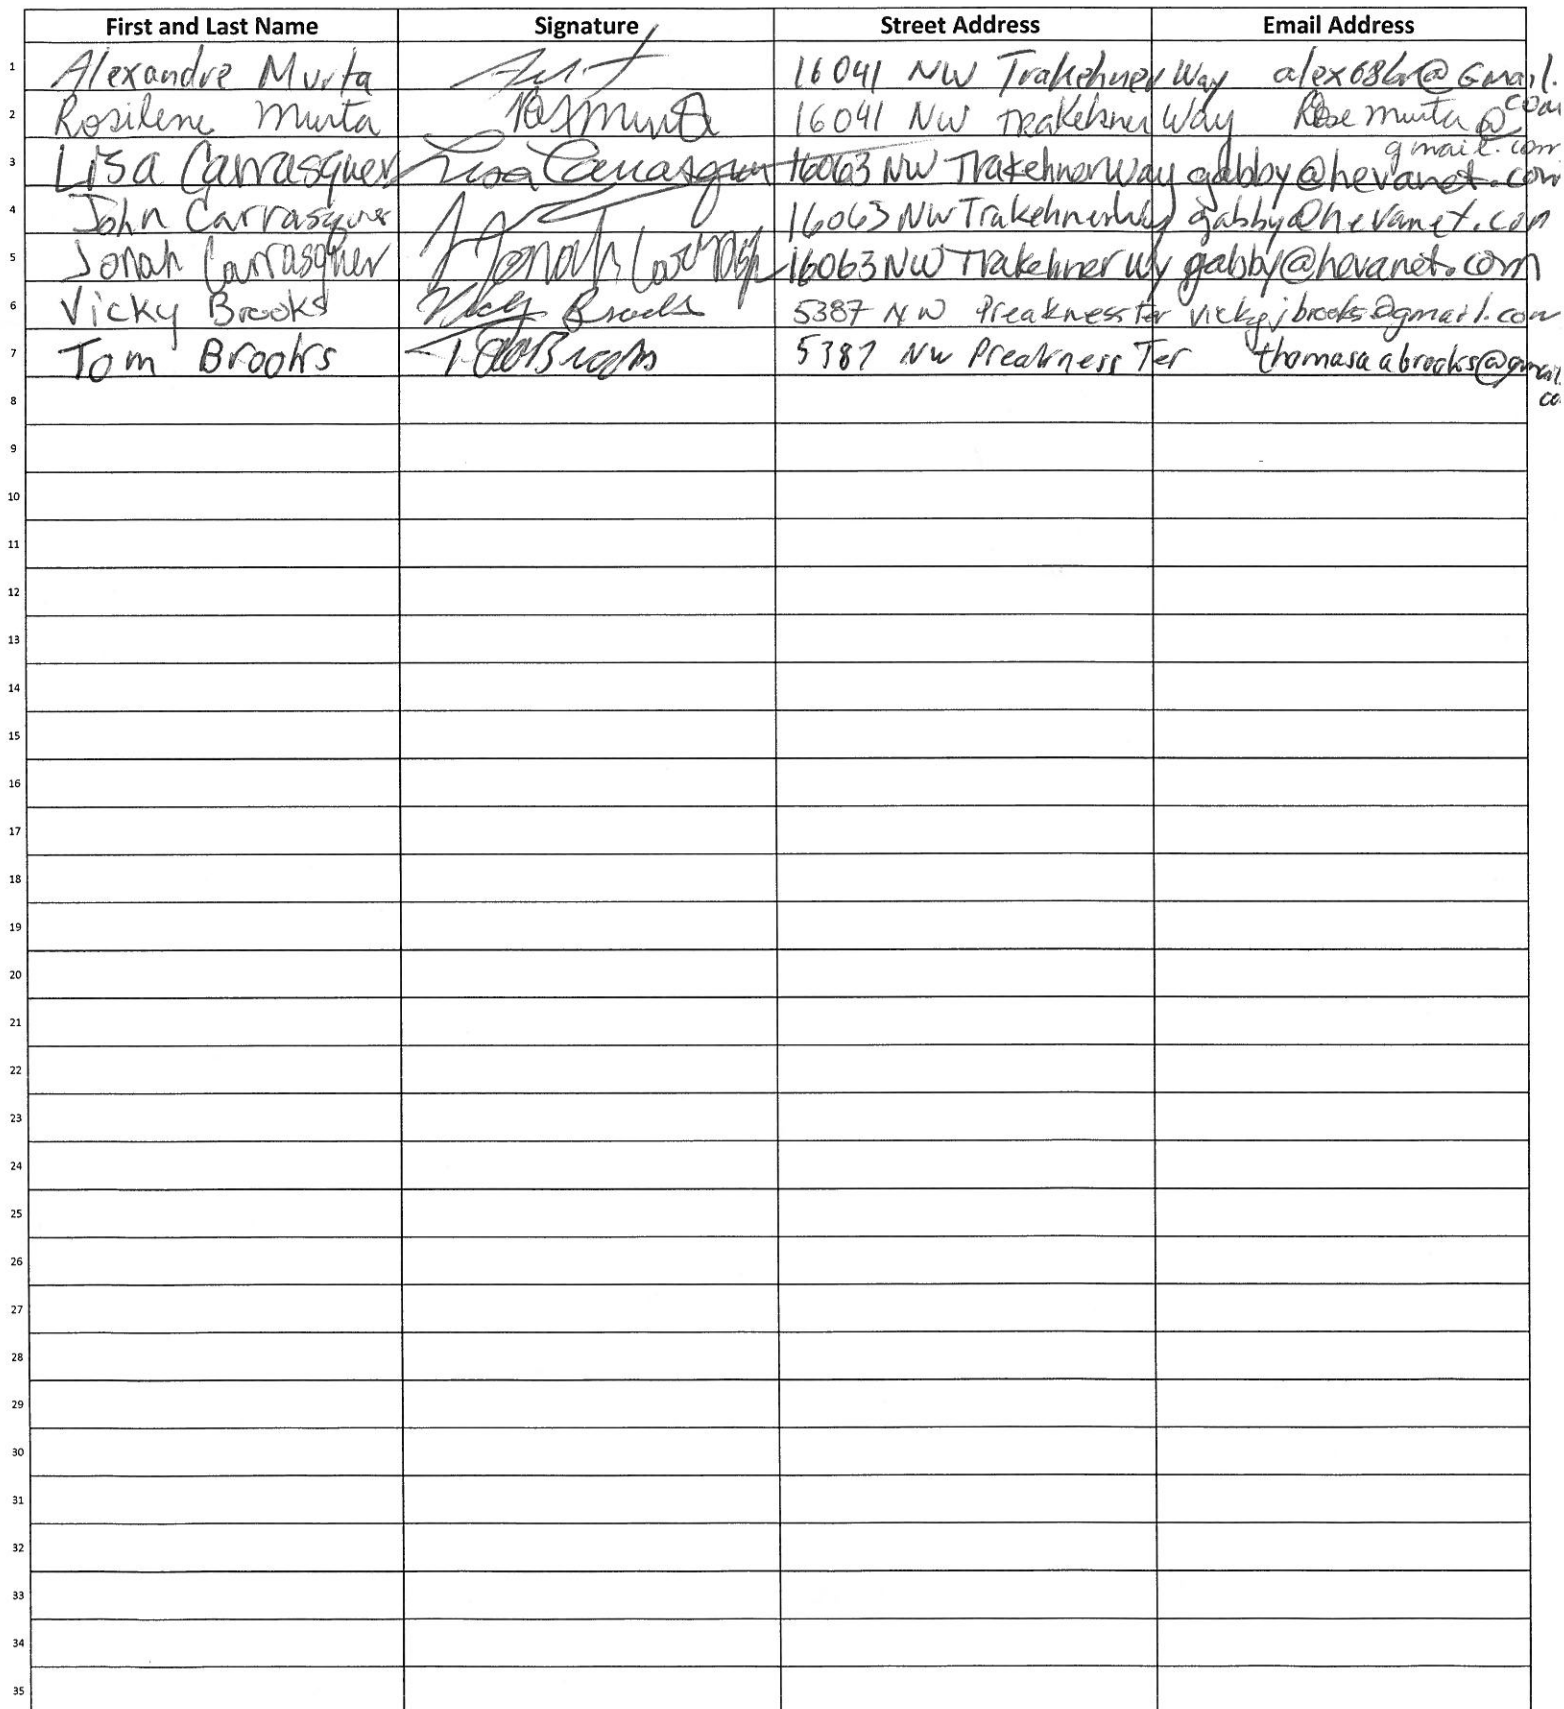 First and Last Name Signature Street Address Email Address
1 Alexandre Murta 16041 NW Trakehner Way @Gmail.
com
2 Rosilene Murta 16041 NW Trakehner Way Rose murta @
gmail.com
3 Lisa Carrasquer Lisa Carrasquer 16063 NW Trakehner Way gabby@hevanet.com
4 John Carrasquer 16063 NW Trakehner Wy gabby@hevanet.com
5 Jonah Carrasquer Jonah 16063 NW Trakehner Wy gabby@hevanet.com
6 Vicky Brooks Vicky Brooks 5387 NW Preakness Ter vickyjbrooks@gmail.com
7 Tom Brooks 5387 NW Preakness Ter thomasaabrooks@gmail.
co
8
9
10
11
12
13
14
15
16
17
18
19
20
21
22
23
24
25
26
27
28
29
30
31
32
33
34
35